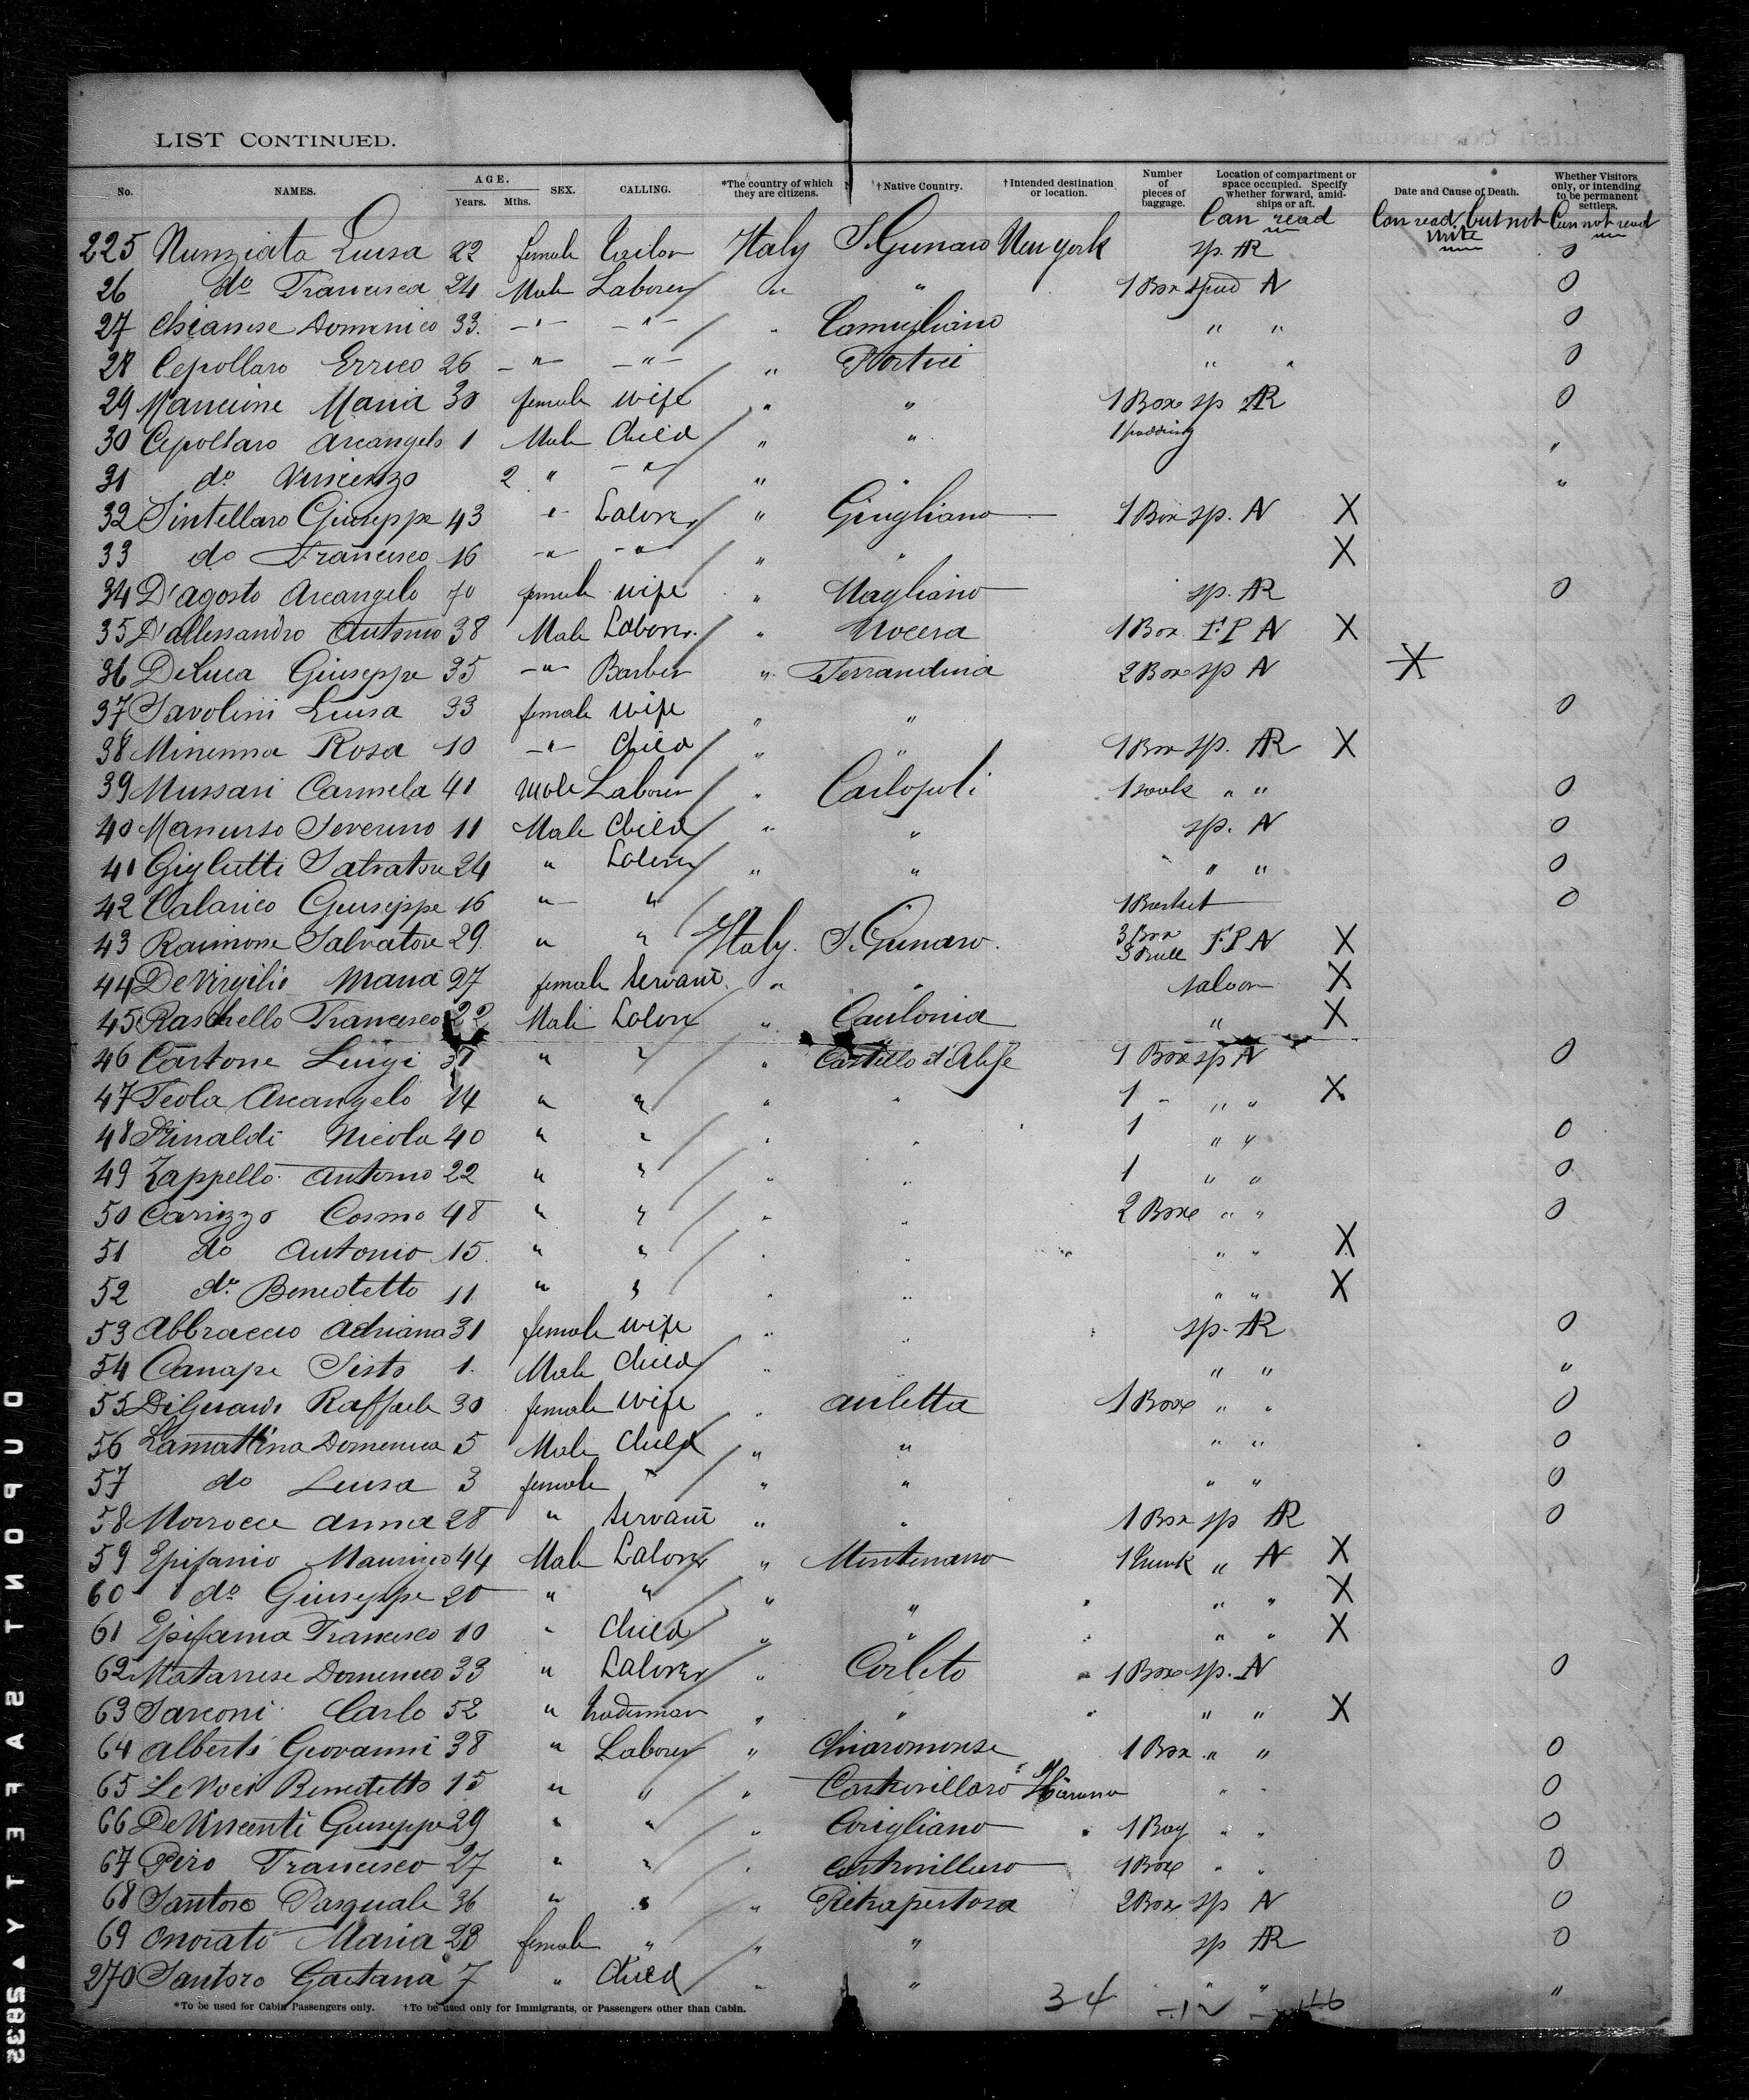 LIST CONTINUED.
No. NAMES. AGE. Years. Mths. SEX. CALLING. *The country of which they are citizens. †Native Country. †Intended destination or location. Number of pieces of baggage. Location of compartment or space occupied. Specify whether forward, amidships or aft. Date and Cause of Death. Whether Visitors only, or intending to be permanent settlers.
Can read Can read but not write Can not read
225 Nunziata Luisa 22 female Italy S. Gennaro New York sp. AR 0
26 do Francesca 24 Male Laborer " " 1 Box N 0
27 Chianese Domenico 33. -"- -"- " Camigliano " " 0
28 Cepollaro Errico 26 -"- -"- " Portici " " 0
29 Mancione Maria 30 female wife " " 1 Box sp AR 0
30 Cepollaro Arcangelo 1 Male Child " " 1 "
31 do Vincenzo 2 " -"- " " "
32 Sintellaro Giuseppe 43 -"- Laborer " Giugliano 1 Box sp. N X
33 do Francesco 16 -"- -"- " " X
34 D'agosto Arcangelo 40 female wife " sp. AR 0
35 D'allessandro Antonio 38 Male Laborer " Nocera 1 Box F.P N X
36 DeLuca Giuseppe 35 -"- Barber " Ferrandina 2 Box sp N X
37 Savolini Luisa 33 female wife " " 0
38 Minenna Rosa 10 -"- Child " " 1 Box sp. AR X
39 Mussari Carmela 41 Male Laborer " Carlopoli 1 " " 0
40 Mancuso Severino 11 Male Child " " sp. N 0
41 Giglietti Salvatore 24 " Laborer " " " " 0
42 Calarico Giuseppe 16 " " 1 Basket 0
43 Raimone Salvatore 29. " " Italy. S. Gennaro. 3 Box F.P N X
44 DeVirgilio Maria 27 female servant " " saloon X
45 Raschello Francesco 22 Male Labor " Caulonia " X
46 Cartone Luigi " " " Castello d'Alife 1 Box sp N 0
47 Teola Arcangelo 14 " " " " 1 " " " X
48 Rinaldi Nicola 40 " " " " 1 " " 0
49 Zappello Antonio 22 " " " " 1 " " 0
50 Carizzo Cosmo 48 " " " " 2 Boxe " " 0
51 do Antonio 15 " " " " " " X
52 do Benedetto 11 " " " " " " X
53 Abbraccio Adriana 31 female wife " " sp. AR 0
54 Canape Sisto 1. Male Child " " " "
55 Raffaele 30 female wife " auletta 1 Boxe " " 0
56 Lamattina Domenica 5 Male Child " " " " 0
57 do Luisa 3 female " " " " " 0
58 Morrocce anna 28 " servant " " 1 Box sp AR 0
59 Epifanio Maurizio 44 Male Laborer " 1 trunk " N X
60 do Giuseppe 20 " " " " " " X
61 Epifania Francesco 10 " Child " " " " X
62 Matarrese Domenico 33 " Laborer " Corleto 1 Boxe sp. N 0
63 Sarconi Carlo 52 " " " " " X
64 alberti Giovanni 38 " Laborer " Chiaromonte 1 Box " " 0
65 LeVoci Benedetto 15 " " " Castrovillaro " " 0
66 DeVincenti Giuseppe 29 " " " Corigliano 1 Bag " " 0
67 Piro Francesco 27 " " " Castrovillaro 1 Boxe " " 0
68 Santoro Pasquale 36 " " " Pietrapertosa 2 Boxe sp N 0
69 Onorato Maria 28 female " " " sp AR 0
270 Santoro Gaetana 7 " Child " " " " "
34
*To be used for Cabin Passengers only. †To be used only for Immigrants, or Passengers other than Cabin.
DUPONT SAFETY ▲ S832